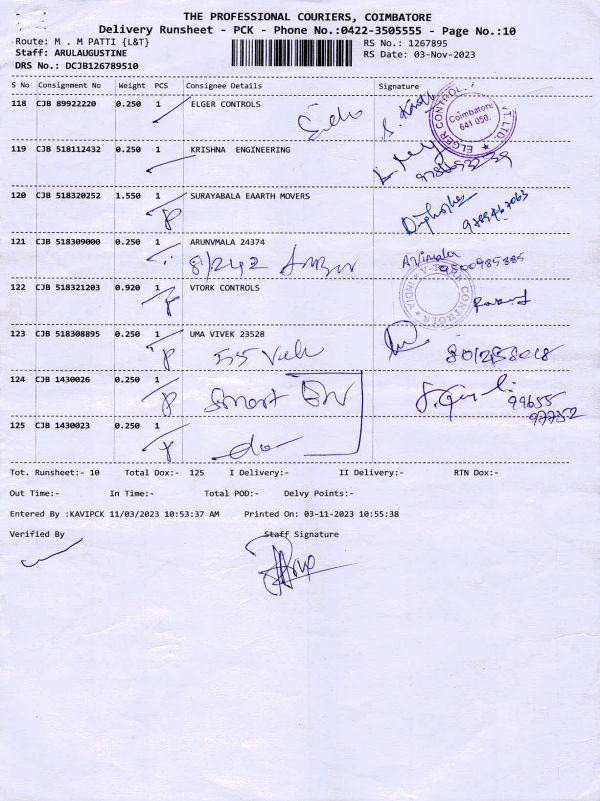 THE PROFESSIONAL COURIERS, COIMBATORE
Delivery Runsheet - PCK - Phone No.:0422-3505555 - Page No.:10
Route: M . M PATTI {L&T} RS No.: 1267895
Staff: ARULAUGUSTINE RS Date: 03-Nov-2023
DRS No.: DCJB126789510
S No Consignment No Weight PCS Consignee Details Signature
118 CJB 89922220 0.250 1 ELGER CONTROLS
ELGER CONTROL
Coimbatore
641 050.
T LTD.
119 CJB 518112432 0.250 1 KRISHNA ENGINEERING
120 CJB 518320252 1.550 1 SURAYABALA EAARTH MOVERS
121 CJB 518309000 0.250 1 ARUNVMALA 24374 AVimala
8/242 9500985885
122 CJB 518321203 0.920 1 VTORK CONTROLS
123 CJB 518308895 0.250 1 UMA VIVEK 23528
55
124 CJB 1430026 0.250 1
Smart 99655
125 CJB 1430023 0.250 1
Tot. Runsheet:- 10 Total Dox:- 125 I Delivery:- II Delivery:- RTN Dox:-
Out Time:- In Time:- Total POD:- Delvy Points:-
Entered By :KAVIPCK 11/03/2023 10:53:37 AM Printed On: 03-11-2023 10:55:38
Verified By Staff Signature